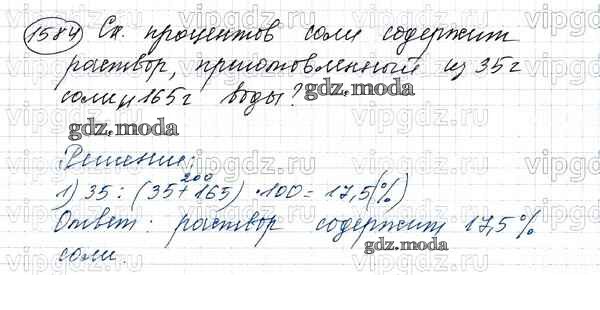 1584 Ск. процентов соли содержит
раствор, приготовленный из 35г
соли и 165г воды?
gdz.moda
gdz.moda
Решение:
200
1) 35 : (35+165) · 100 = 17,5(%)
Ответ: раствор содержит 17,5%
соли.
gdz.moda